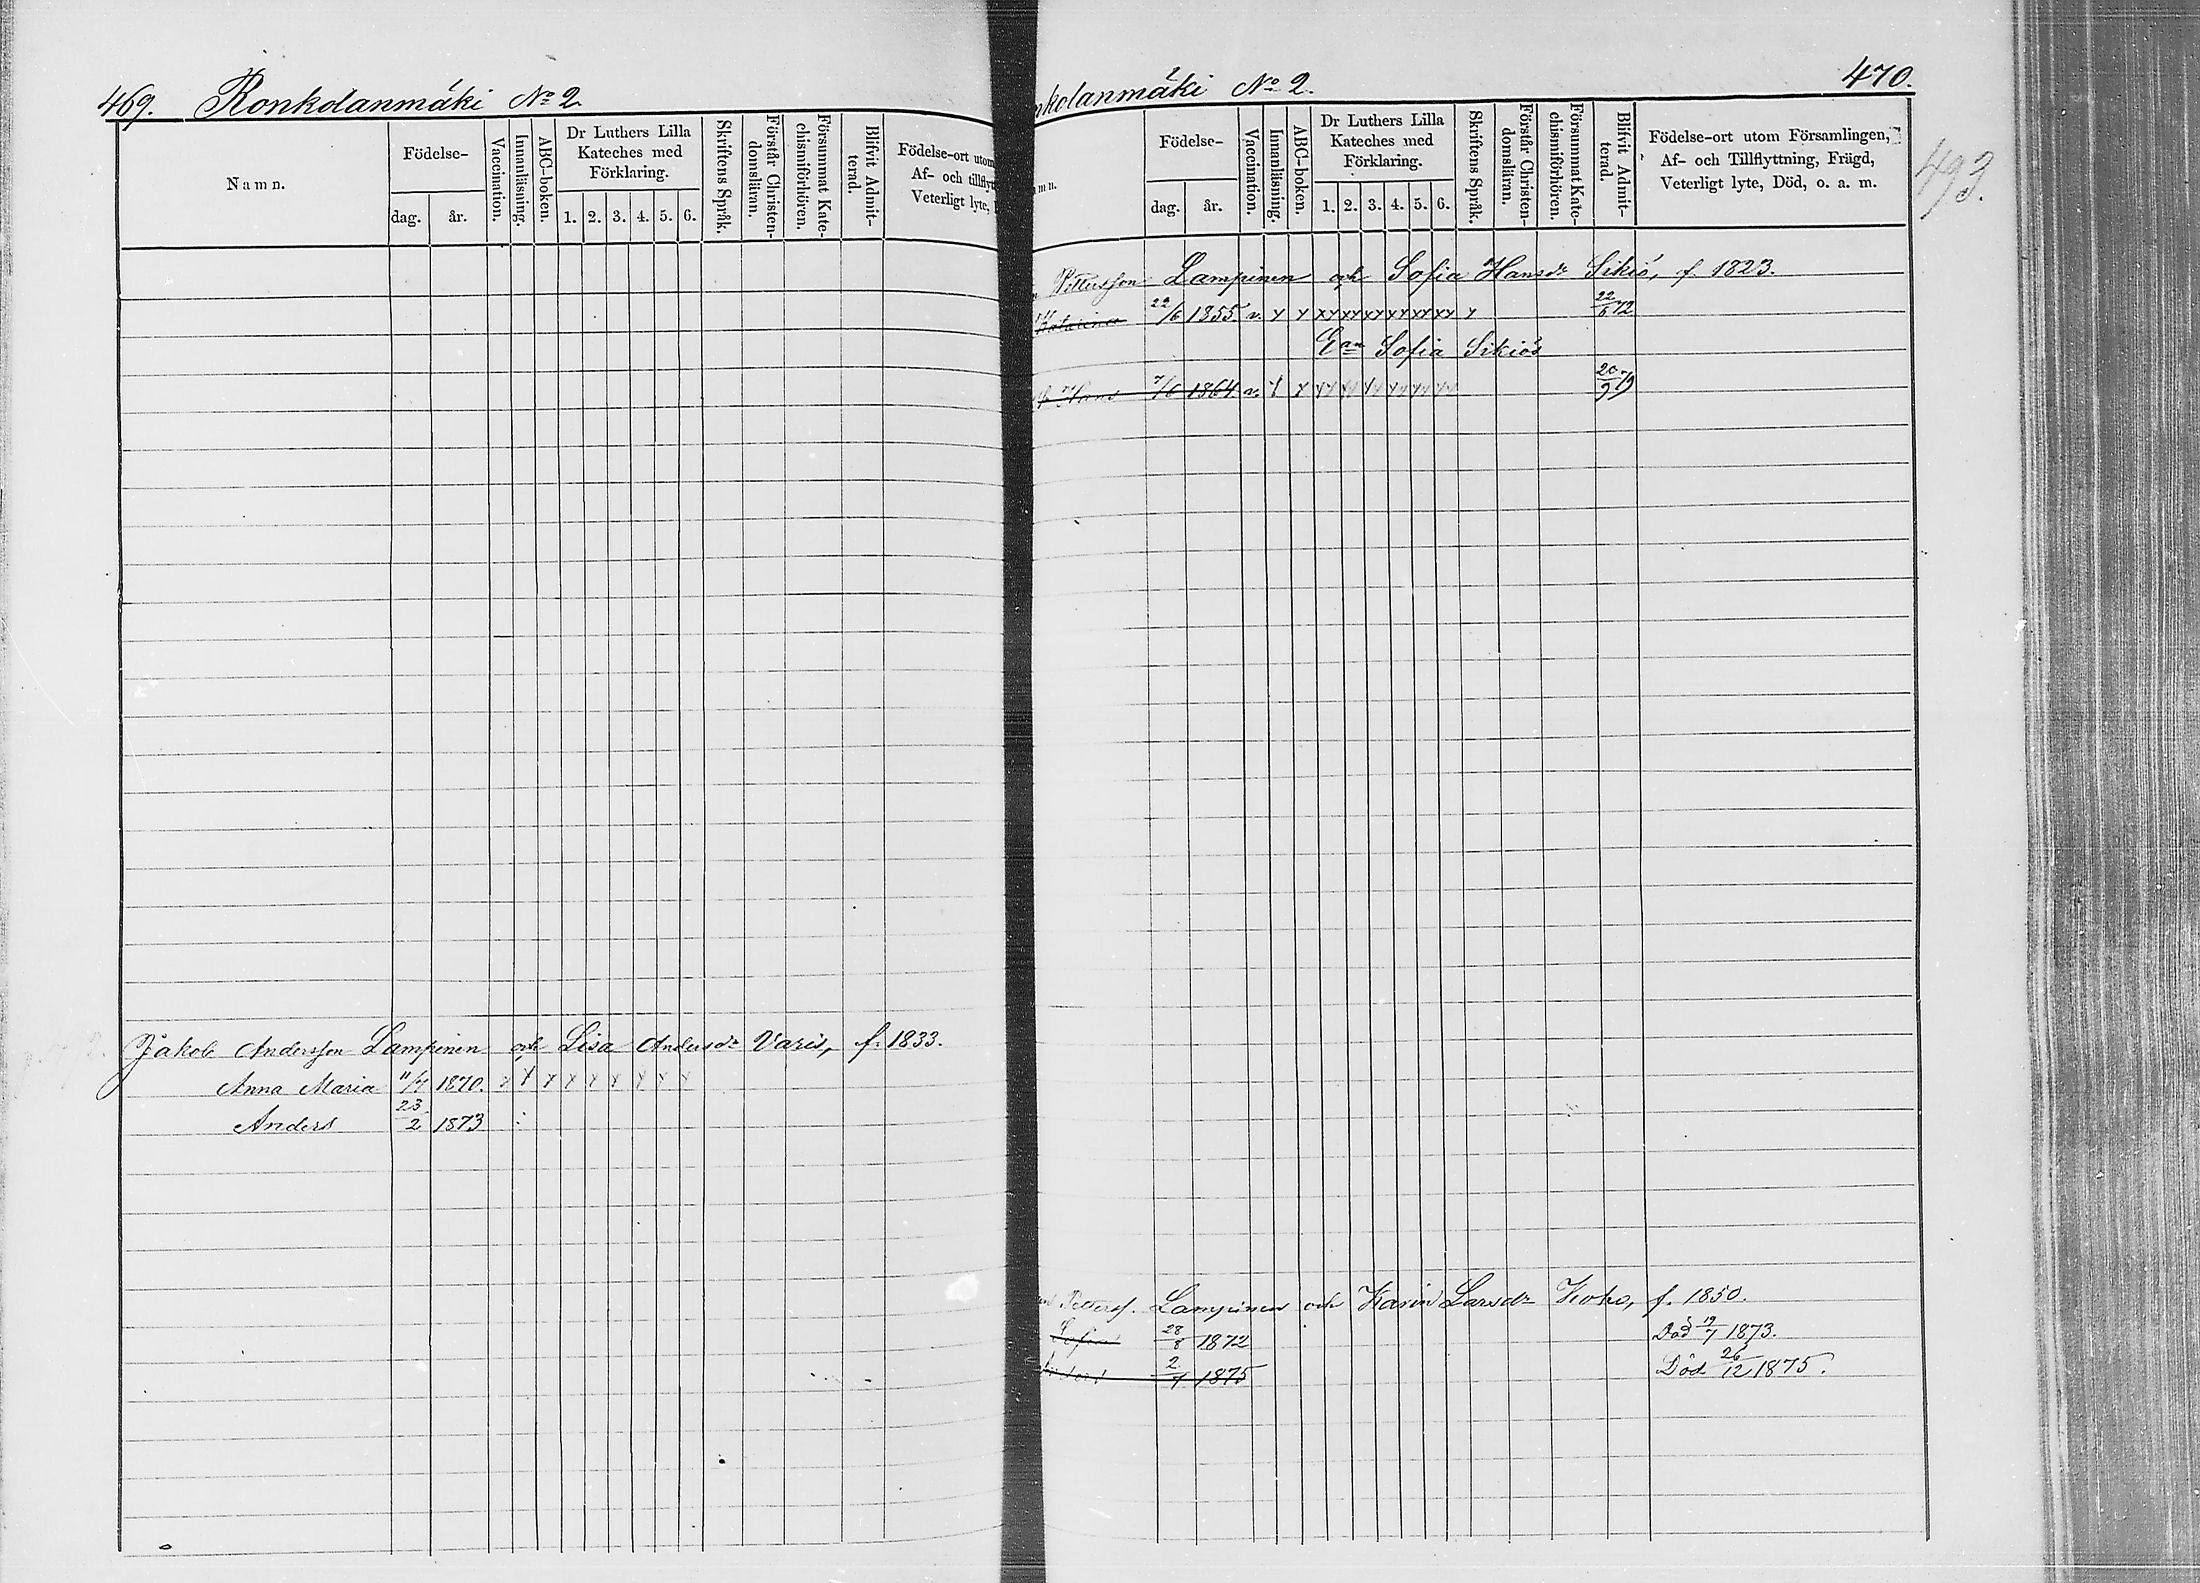 469. Ronkdanmäki No 2.
Namn.
Födelse-
dag. år.
Vaccination.
Innanläsning.
ABC-boken.
Dr Luthers Lilla
Kateches med
Förklaring.
1. 2. 3. 4. 5. 6.
Skriftens Språk.
Förstår Christen-
domsläran.
Försummat Kate-
chismiförhören.
Blifvit Admit-
terad.
Födelse-ort utom
Af- och tillflyt
Veterligt lyte,
Jakob Andersson Lampinen och Lisa Andersdr Varis, f. 1833.
Anna Maria 11/7 1870. x x x x x x x x x
Anders 23/2 1873
nkdanmäki No 2. 470.
mn.
Födelse-
dag. år.
Vaccination.
Innanläsning.
ABC-boken.
Dr Luthers Lilla
Kateches med
Förklaring.
1. 2. 3. 4. 5. 6.
Skriftens Språk.
Förstår Christen-
domsläran.
Försummat Kate-
chismiförhören.
Blifvit Admit-
terad.
Födelse-ort utom Församlingen,
Af- och Tillflyttning, Frägd,
Veterligt lyte, Död, o. a. m.
493.
Pettersson Lampinen och Sofia Hansdr Sikiö, f. 1823.
Katarina 22/6 1855. v. x x xx xx xx xx xx xx x 22/6 72
Ean Sofia Sikiös
Hans 7/6 1864 v. x x xx xx xx xx xx xx 20/9 79
Petterss. Lampinen och Karin Larsdr Koho, f. 1850.
Sofia 28/8 1872 Död 19/7 1873.
2/7 1875 Död 26/12 1875.